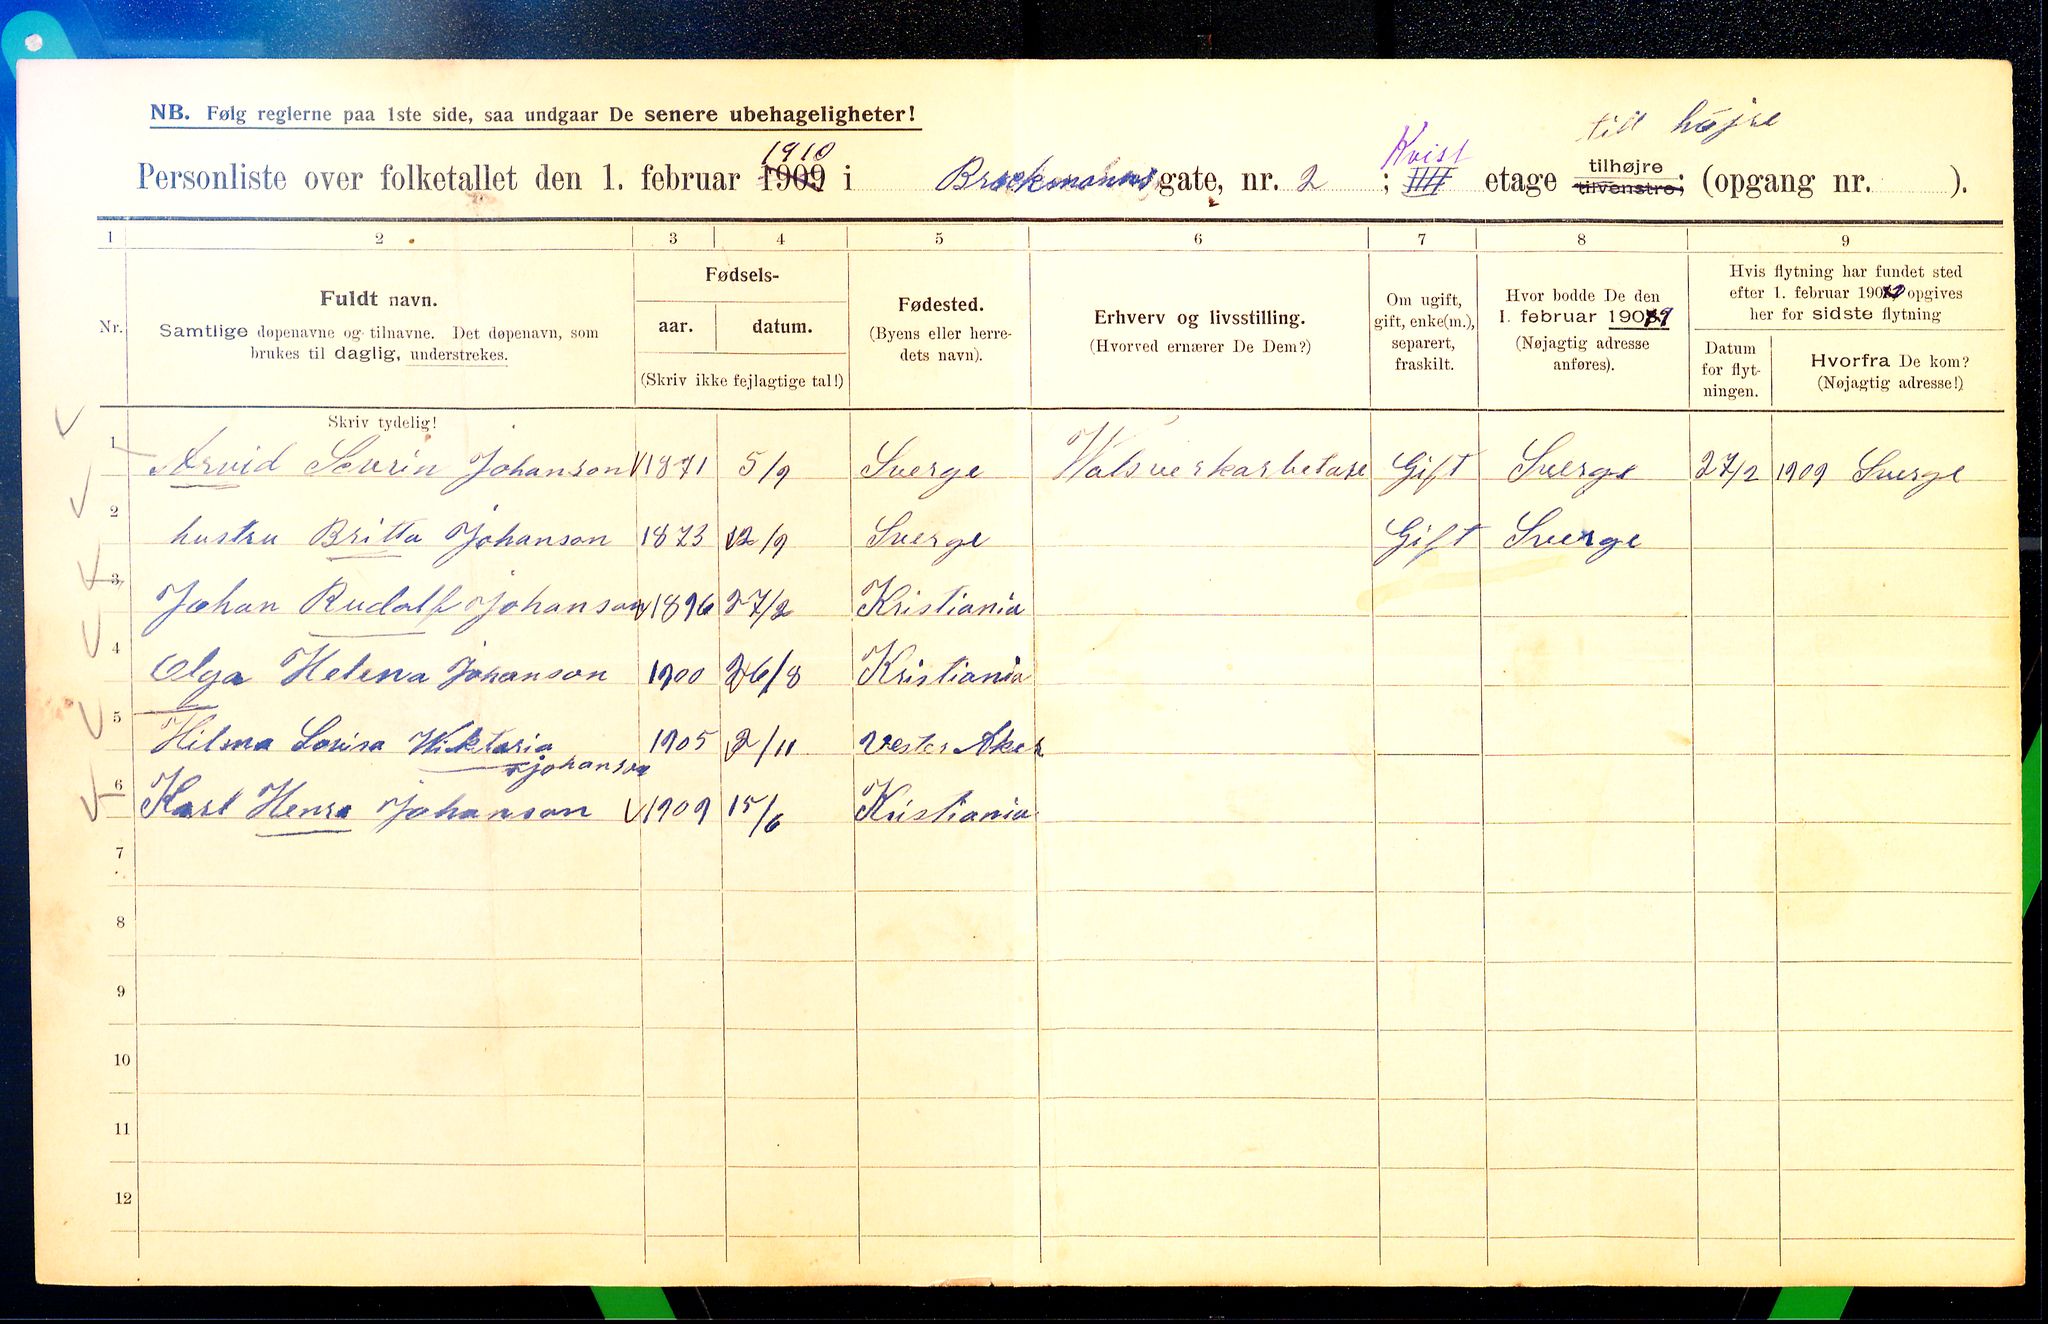 till højre
NB. Følg reglerne paa 1ste side, saa undgaar De senere ubehageligheter!
1910 Kvist
Personliste over folketallet den 1. februar 1909 i Brockmanns gate, nr. 2 ; IIII etage tilhøjre tilvenstre; (opgang nr. ).
1 2 3 4 5 6 7 8 9
Nr.
Fuldt navn.
Samtlige døpenavne og tilnavne. Det døpenavn, som
brukes til daglig, understrekes.
Fødsels-
aar. datum.
(Skriv ikke fejlagtige tal!)
Fødested.
(Byens eller herre-
dets navn).
Erhverv og livsstilling.
(Hvorved ernærer De Dem?)
Om ugift,
gift, enke(m.),
separert,
fraskilt.
Hvor bodde De den
1. februar 1909
(Nøjagtig adresse
anføres).
Hvis flytning har fundet sted
efter 1. februar 1909 opgives
her for sidste flytning
Datum
for flyt-
ningen.
Hvorfra De kom?
(Nøjagtig adresse!)
Skriv tydelig!
1 Arvid Severin Johanson 1871 5/9 Sverge Valsverkarbetare Gift Sverge 27/2 1909 Sverge
2 hustru Britta Johanson 1873 12/9 Sverge Gift Sverge
3 Johan Rudolf Johanson 1896 27/2 Kristiania
4 Olga Helena Johanson 1900 26/8 Kristiania
5 Hilma Lovisa Wiktoria 1905 2/11 Vester Aker
Johanson
6 Karl Henre Johanson 1909 15/6 Kristiania
7
8
9
10
11
12